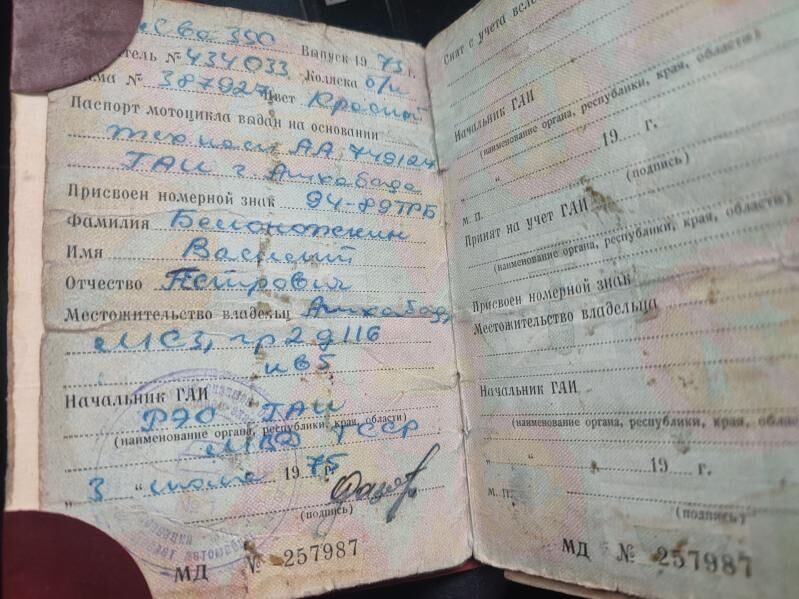 350 Выпуск 1973 г.
№ 434033 Коляска б/к
№ 387927 Цвет Красный
Паспорт мотоцикла выдан на основании
АА 749124
ГАИ г. Ашхабада
Присвоен номерной знак 94-89ТРБ
Фамилия Белоножкин
Имя Василий
Отчество Петрович
Местожительство владельц Ашхабад,
МСЗ, гр 2 д 116
кв 5
Начальник ГАИ
РЭО ГАИ
(наименование органа, республики, края, области)
МВД ТССР
„ 3 “ 1975 г.
(подпись)
МД № 257987
Снят с учета
Начальник ГАИ
(наименование органа, республики, края, области)
„ “ 19 г.
(подпись)
м. п.
Принят на учет ГАИ
(наименование органа, республики, края, области)
Присвоен номерной знак
Местожительство владельца
Начальник ГАИ
(наименование органа, республики, края, области)
„ “ 19 г.
м. п.
(подпись)
МД № 257987